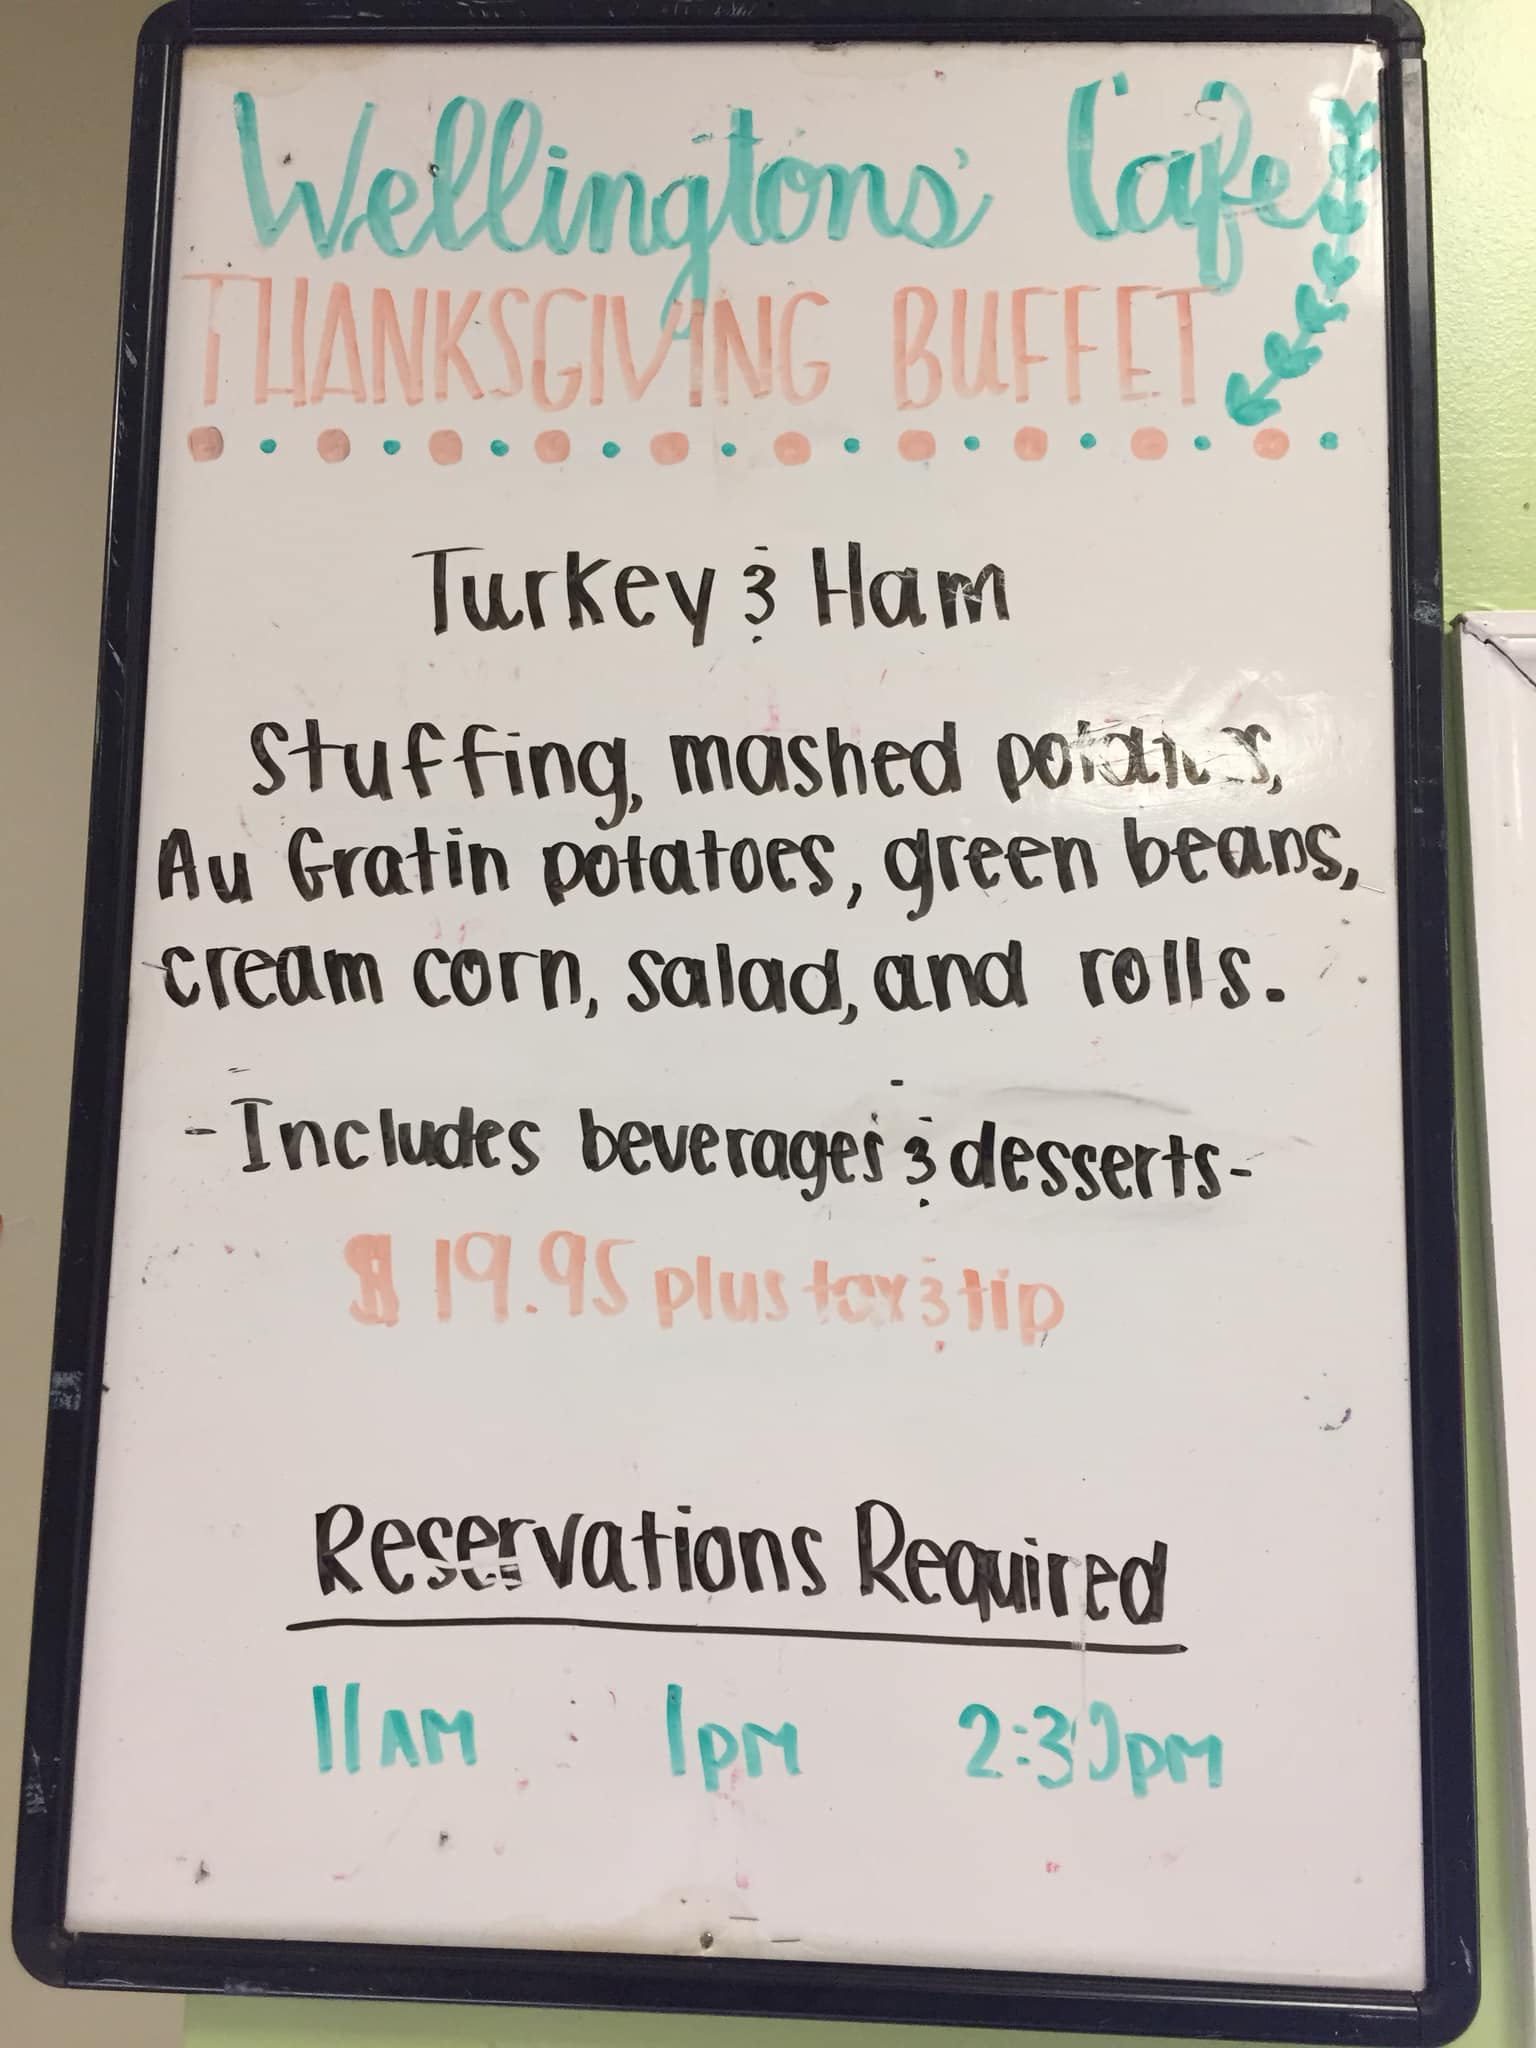 Wellingtons' Cafe
THANKSGIVING BUFFET
Turkey & Ham
Stuffing, mashed potatoes,
Au Gratin potatoes, green beans,
cream corn, salad, and rolls.
- Includes beverages & desserts -
$19.95 plus tax & tip
Reservations Required
11AM 1PM 2:30PM